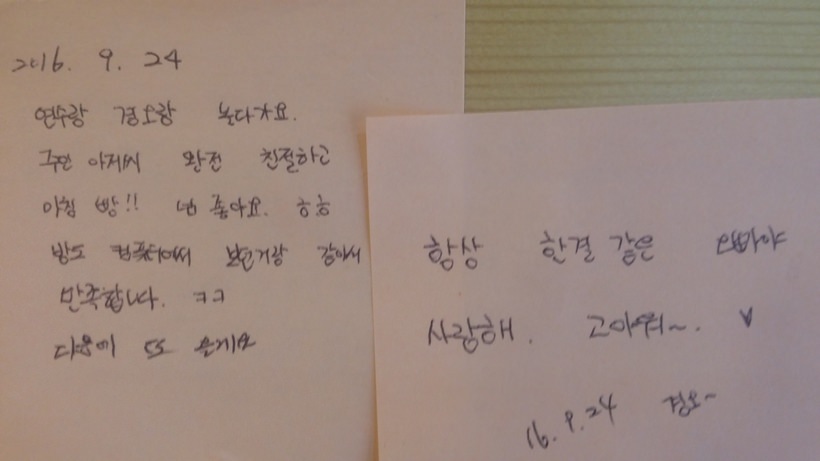 2016. 9. 24
연수랑 경오랑 놀다가요.
주인 아저씨 완전 친절하고
아침 빵!! 넘 좋아요. ㅎㅎ
방도 컴퓨터에서 보던거랑 같아서
만족합니다. ㅋㅋ
다음에 또 올게요
항상 한결 같은 오빠야
사랑해. 고마워~. ♥
16. 9. 24 경오~